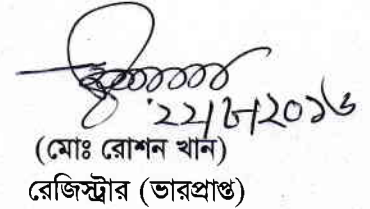 ২২/৮/২০১৬
(মোঃ রোশন খান)
রেজিস্ট্রার (ভারপ্রাপ্ত)